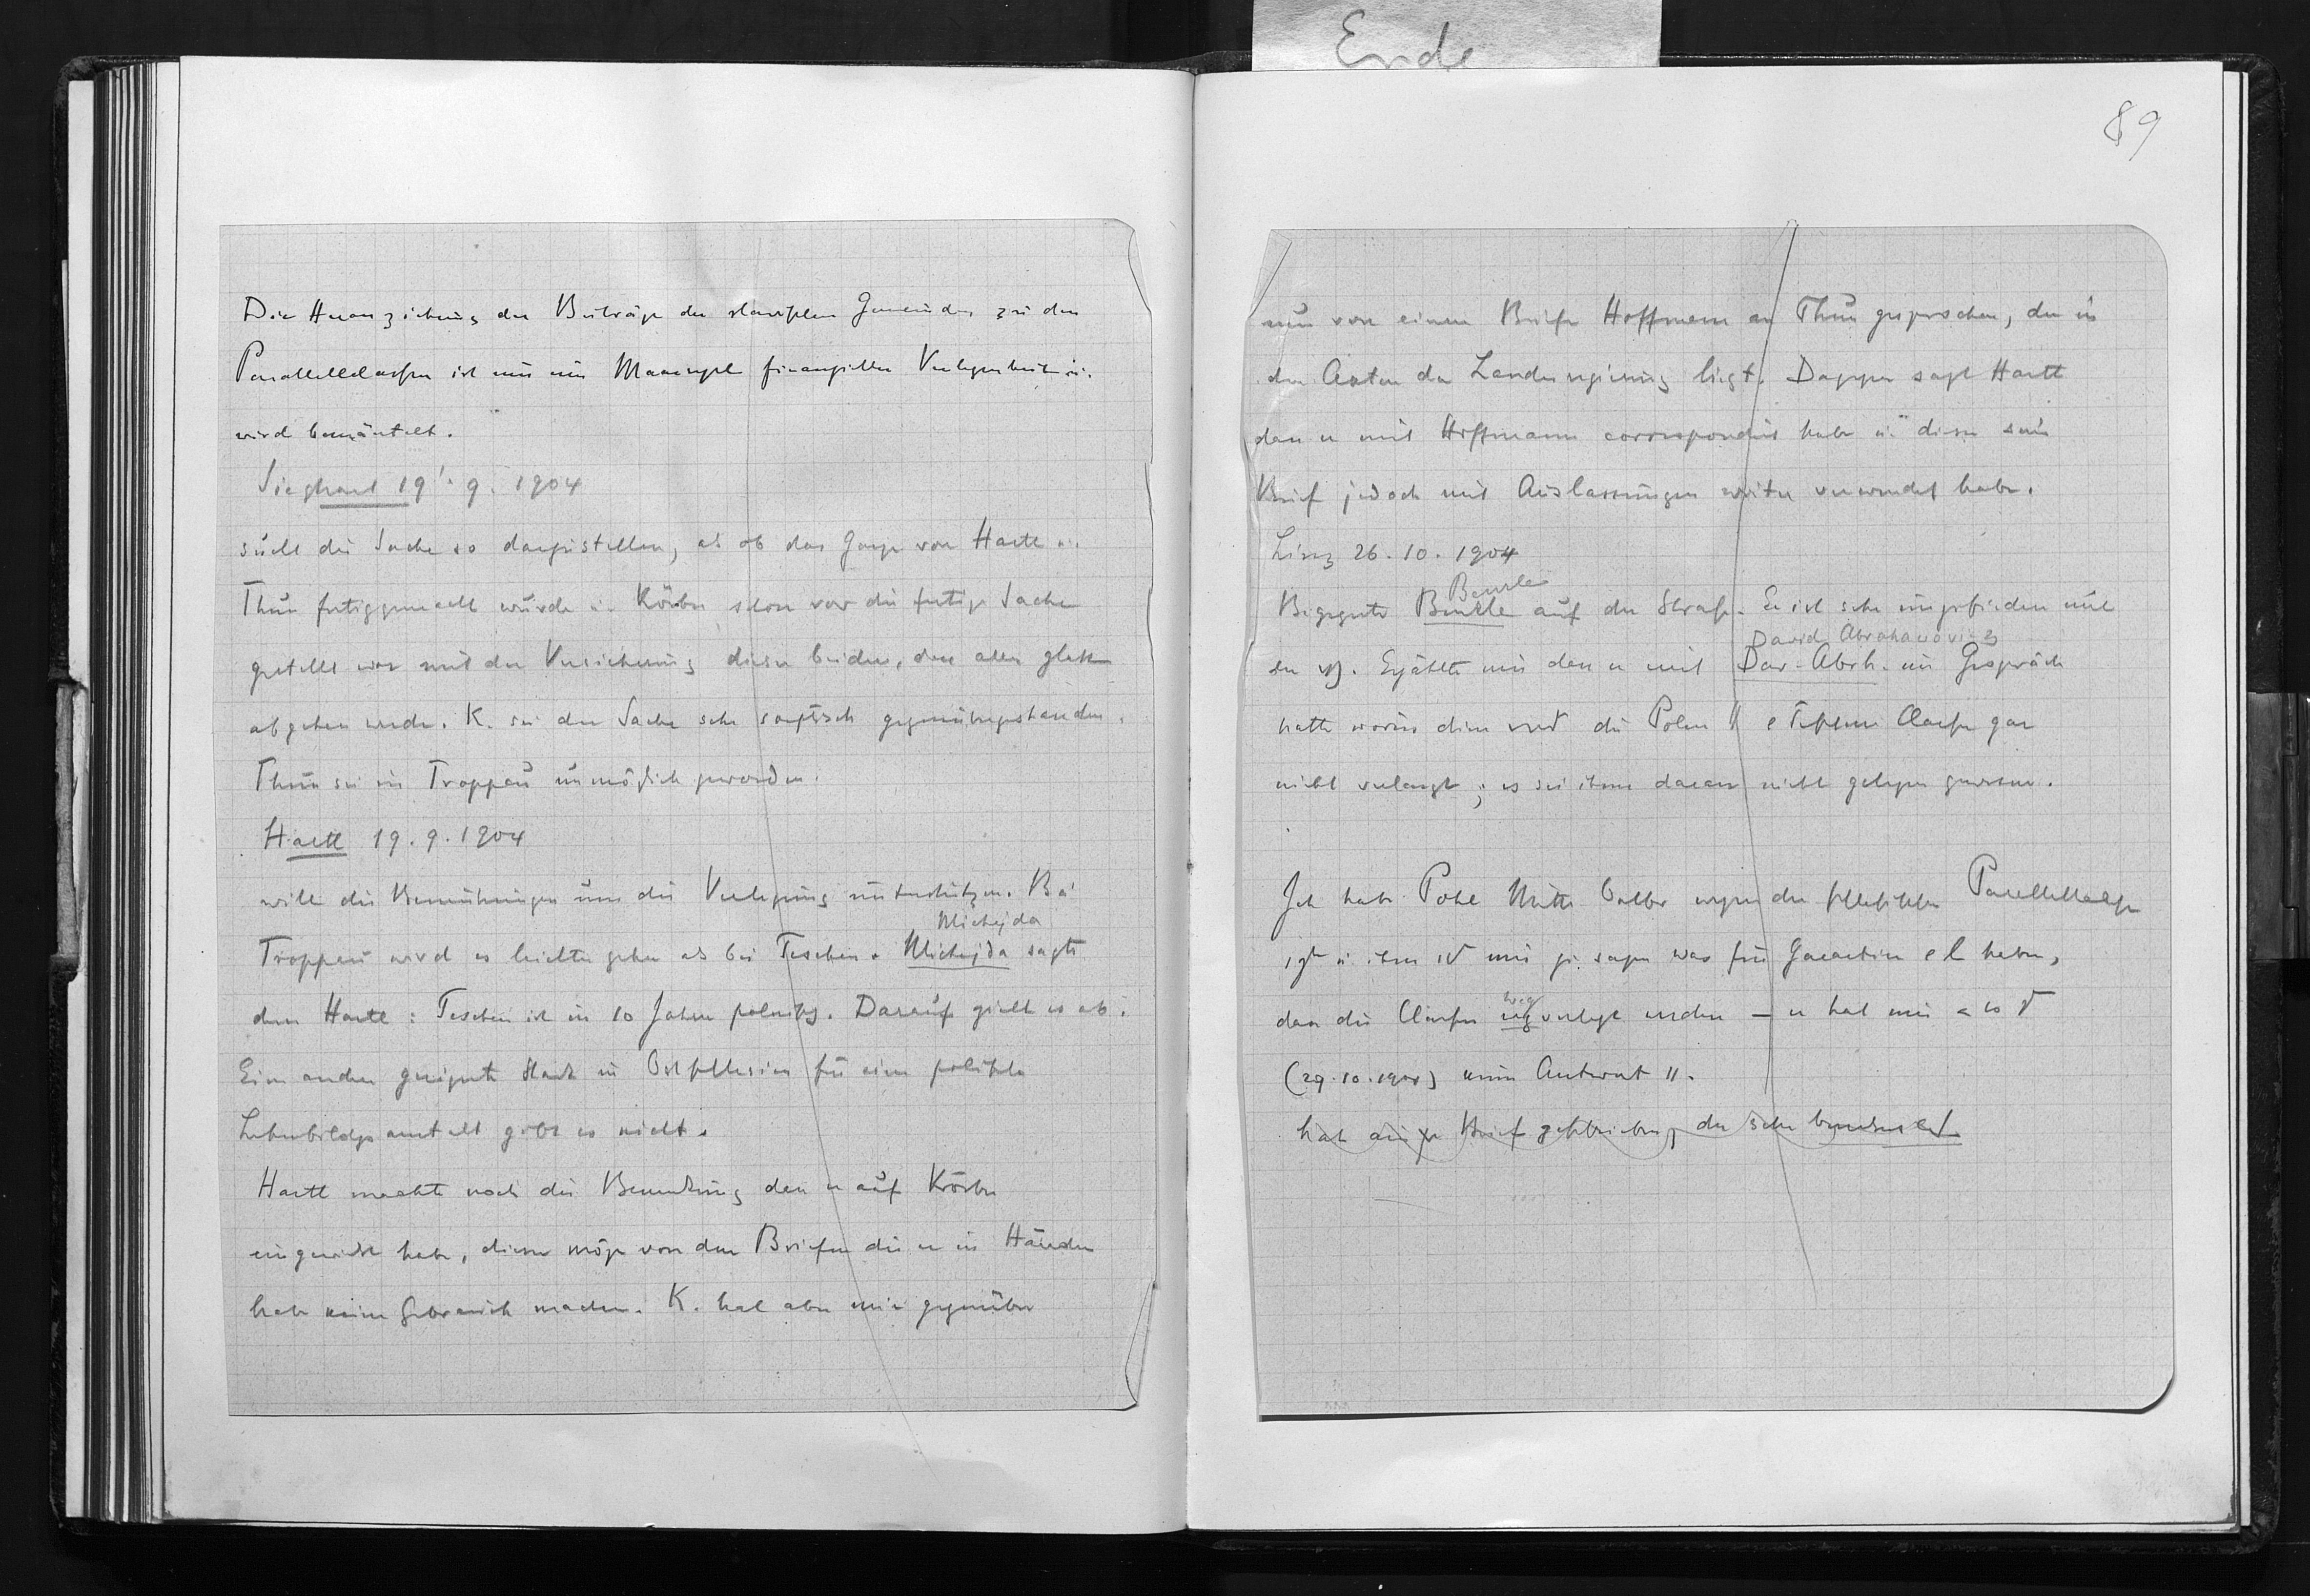 Ende
89
Die Heranziehung der Beiträge der slavischen Gemeinden zu den
Parallelclassen ist nur ein finanzieller Verlegenheit u.
wird bemäntelt.
Sieghart 19. 9. 1904
sucht die Sache so darzustellen, als ob das Ganze von Hartl u.
Thun fertiggemacht wurde u. Körber schon vor die fertige Sache
gestellt war mit der Versicherung dieser beiden, dass alles glatt
abgehen werde. K. sei der Sache sehr skeptisch gegenübergestanden.
Thun sei in Troppau unmöglich geworden.
Hartl 19. 9. 1904
will die Bemühungen um die Verlegung unterstützen. Bei
Michejda
Troppau wird es leichter gehen als bei Teschen. Michejda sagte
dem Hartl: Teschen ist in 10 Jahren polnisch. Darauf zielt es ab.
Eine andere geeignete Stadt in Ostschlesien für eine polnische
Lehrerbildgsanstalt gibt es nicht.
Hartl machte noch die Bemerkung dass er auf Körber
eingewirkt habe, dieser möge von den Briefen die er in Händen
habe keinen Gebrauch machen. K. hat aber mir gegenüber
nun von einem Briefe Hoffmann an Thun gesprochen, der in
den Akten der Landesregierung liegt. Dagegen sagt Hartl
dass er mit Hoffmann correspondirt habe u. dieser sein
Brief jedoch mit Auslassungen weiter verwendet habe.
Linz 26. 10. 1904
Beurle
Begegnete Beurle auf der Strasse. Er ist sehr unzufrieden mit
David Abrahamovicz
der . Erzählte mir dass er mit Dav. Abrh. ein Gespräch
hatte worin dieser die Polen Classen gar
nicht verlangt; es sei ihnen daran nicht gelegen gewesen.
Ich habe Pohl Mitte wegen der schlesischen Parallelclasse
u. ihm mir zu sagen was für Garantien haben,
weg
dass die Classen weg verlegt werden – er hat mir
(29.10.1904) keine Antwort
hat einen Brief geschrieben, der sehr